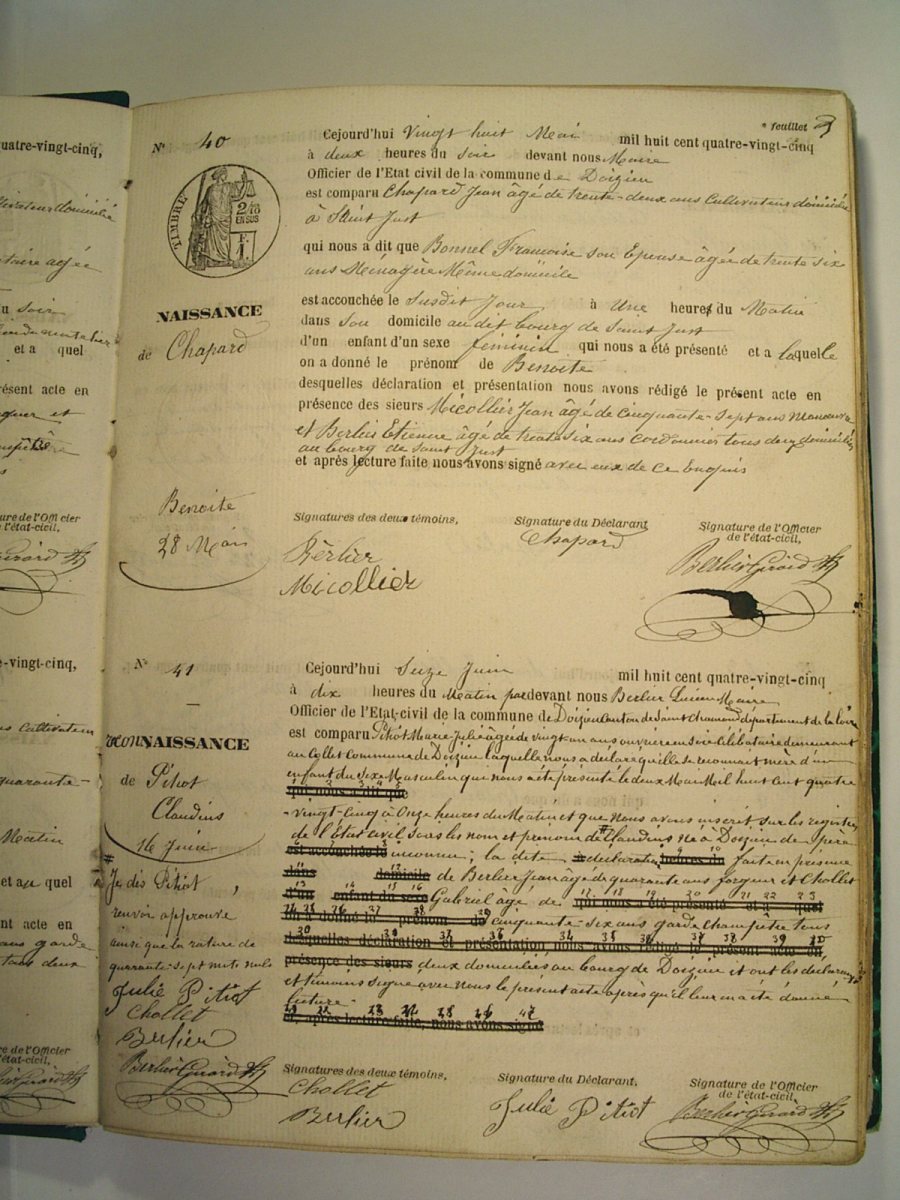 uatre-vingt-cinq,
et a quel
ésent acte en
ure de l'Officier
e l'état-civil,
e-vingt-cinq,
cultivateur
quarante-
Matin
et au quel
nt acte en
garde
tous deux
re de l'Officier
'état-civil,
feuillet
N° 40
TIMBRE
2/10
EN SUS
Cejourd'hui Vingt huit Mai mil huit cent quatre-vingt-cinq
à deux heures du soir devant nous Maire
Officier de l'Etat civil de la commune de Doizieu
est comparu Chapard Jean âgé de trente-deux ans Cultivateur domicilié
à Saint Just
qui nous a dit que Bonnel Françoise son Epouse âgée de trente six
ans Ménagère Même domicile
est accouchée le susdit Jour à Une heures du Matin
dans son domicile au dit bourg de Saint Just
d'un enfant d'un sexe féminin qui nous a été présenté et a laquelle
on a donné le prénom de Benoite
desquelles déclaration et présentation nous avons rédigé le présent acte en
présence des sieurs Micollier Jean âgé de cinquante-sept ans Manoeuvre
et Berlier Etienne âgé de trente six ans cordonnier tous deux domiciliés
au bourg de Saint Just
et après lecture faite nous avons signé avec eux de ce Enquis
NAISSANCE
de Chapard
Benoite
28 Mai
Signatures des deux témoins,
Berlier
Micollier
Signature du Déclarant
Chapard
Signature de l'Officier
de l'état-civil,
Berlier Girard
N° 41
Cejourd'hui Seize Juin mil huit cent quatre-vingt-cinq
à dix heures du Matin pardevant nous Berlier Lucien Maire
Officier de l'Etat-civil de la commune de Doizieu Canton de Saint Chamond département de la loire
est comparu Pitiot Marie Julie âgée de vingt un ans ouvrière en Soie Célibataire demeurant
au Collet Commune de Doizieu laquelle nous a déclaré qu'elle se reconnait mère d'un
enfant du Sexe Masculin que nous a été présenté le deux Mai Mil huit cent quatre
qui nous a dit que
-vingt-cinq à Onze heures du Matin et que Nous avons inscrit sur les registres
de l'état civil sous les nom et prénom de Claudius né à Doizieu de père
est accouchée le inconnu; la dite déclaration heures du faite en présence
dans domicile de Berlier Jean âgé de quarante ans forgeur et Chollet
d'un enfant du sexe Gabriel âgé de qui nous a été présenté et a quel
on a donné le prénom de cinquante-six ans garde champêtre tous
desquelles déclaration et présentation nous avons rédigé le présent acte en
présence des sieurs deux domiciliés au bourg de Doizieu et ont les déclarants
et témoins signé avec Nous le présent acte après qu'il leur en a été donné
lecture.
et après lecture faite, nous avons signé
reconNAISSANCE
de Pitiot
Claudius
16 Juin
Je dis Pitiot,
renvoi approuvé
ainsi que la rature de
quarante-sept mots nuls
Julie Pitiot
Chollet
Berlier
Berlier Girard
Signatures des deux témoins,
Chollet
Berlier
Signature du Déclarant,
Julie Pitiot
Signature de l'Officier
de l'état-civil,
Berlier Girard